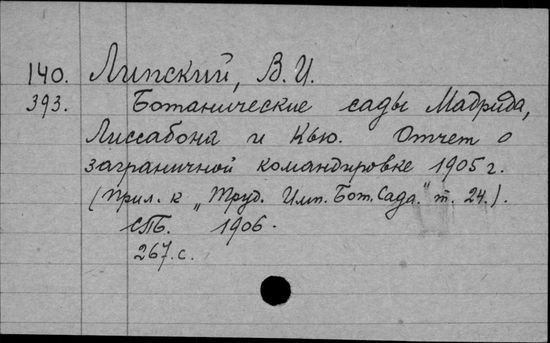 140. Липский, В.И.
393. Ботанические сады Мадрида,
Лиссабона и Кью. Отчет о
заграничной командировке 1905 г.
(Прил. к „Труд. Имп. Бот. Сада." т. 24.).
СПБ. 1906.
267. с.